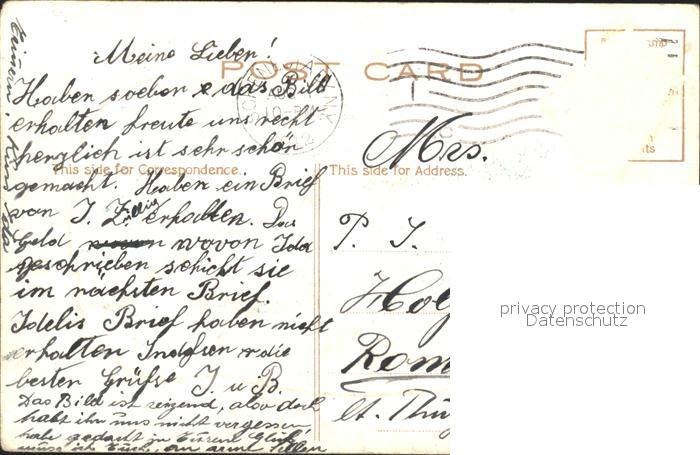 POST CARD
This side for Correspondence.
This side for Address.
Meine Lieben!
Haben soeben das Bild
erhalten freute uns recht
herzlich ist sehr schön
gemacht. Haben ein Brief
von J. Züllig erhalten. Das
Geld wovon Ida
geschrieben schickt sie
im nächsten Brief.
Idelis Brief haben nicht
erhalten Indessen die
besten Grüsse J. u B.
Das Bild ist reizend, also doch
habt ihr uns nicht vergessen
habe gedacht in Eurem Glück
Mrs.
P. J.
Rom
Ct. Thu
privacy protection
Datenschutz